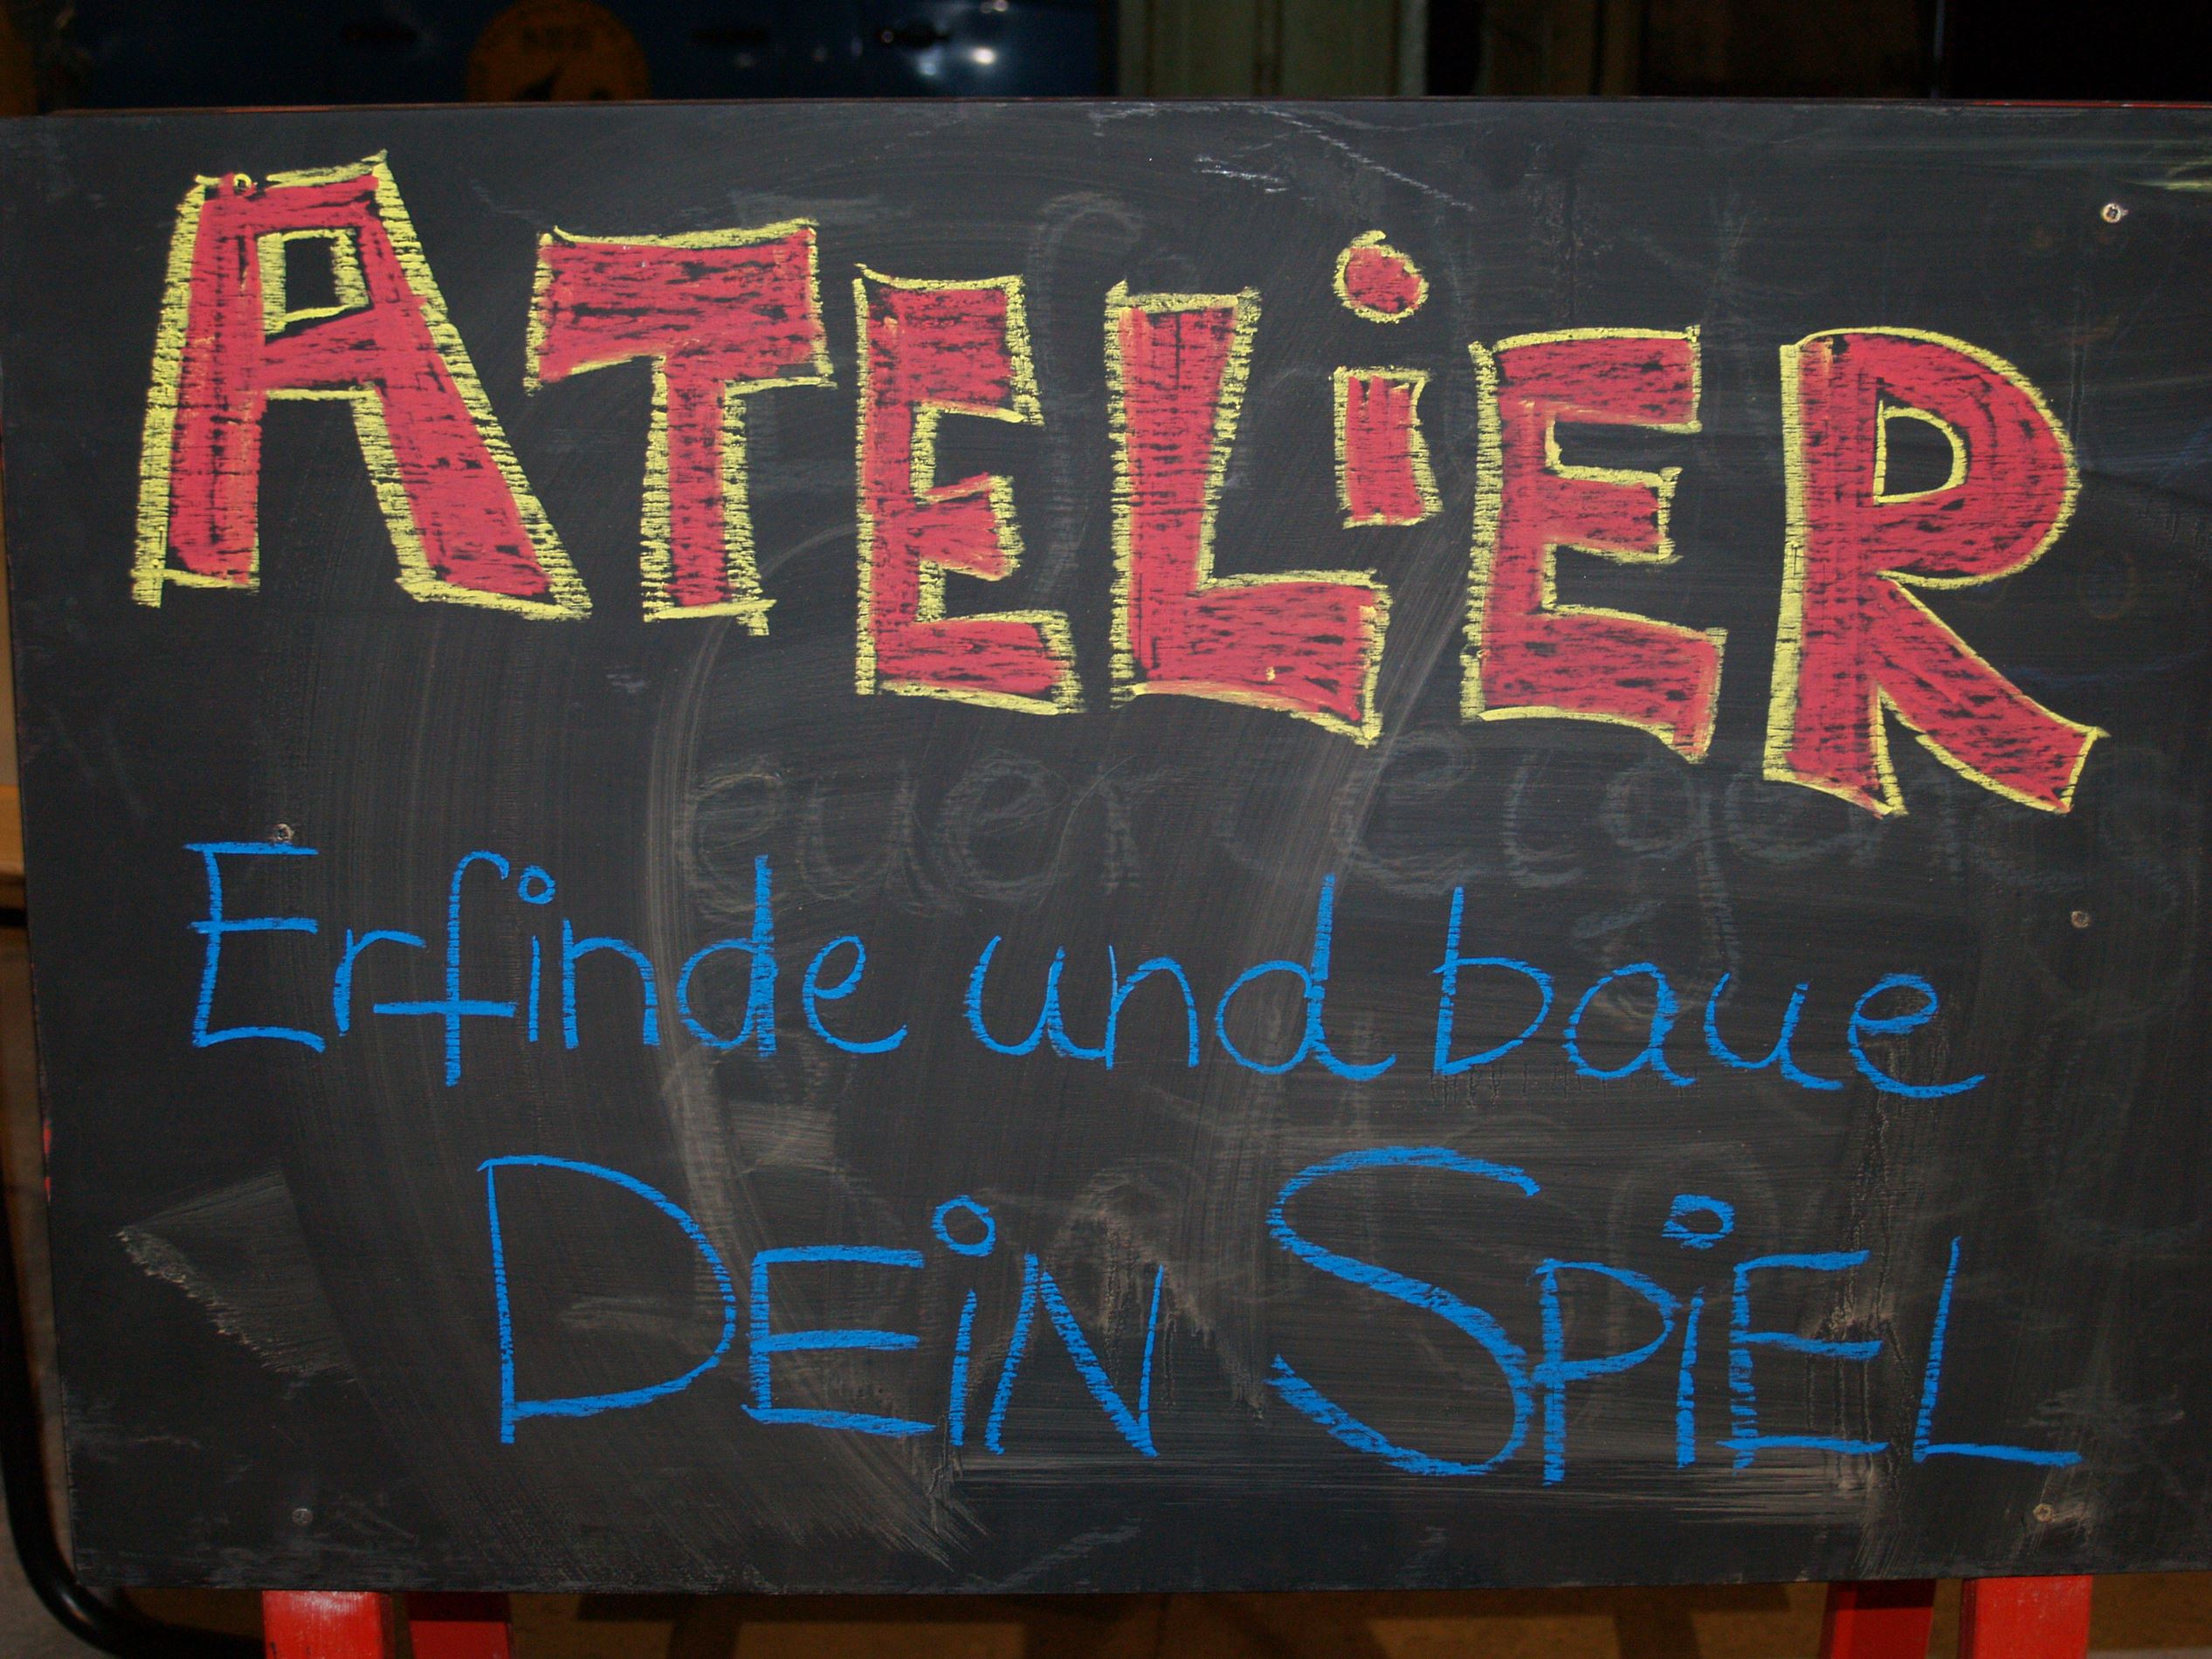 ATELiER
Erfinde und baue
DEiN SPiEL